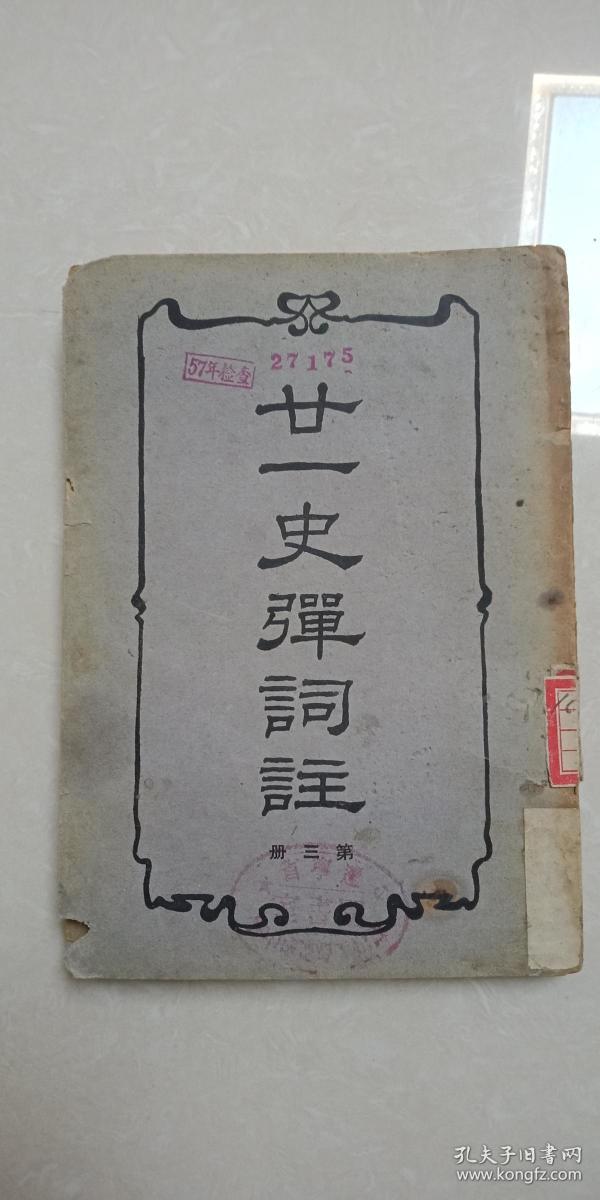 57年检查
27175
廿一史彈詞註
第三册
孔夫子旧书网
www.kongfz.com